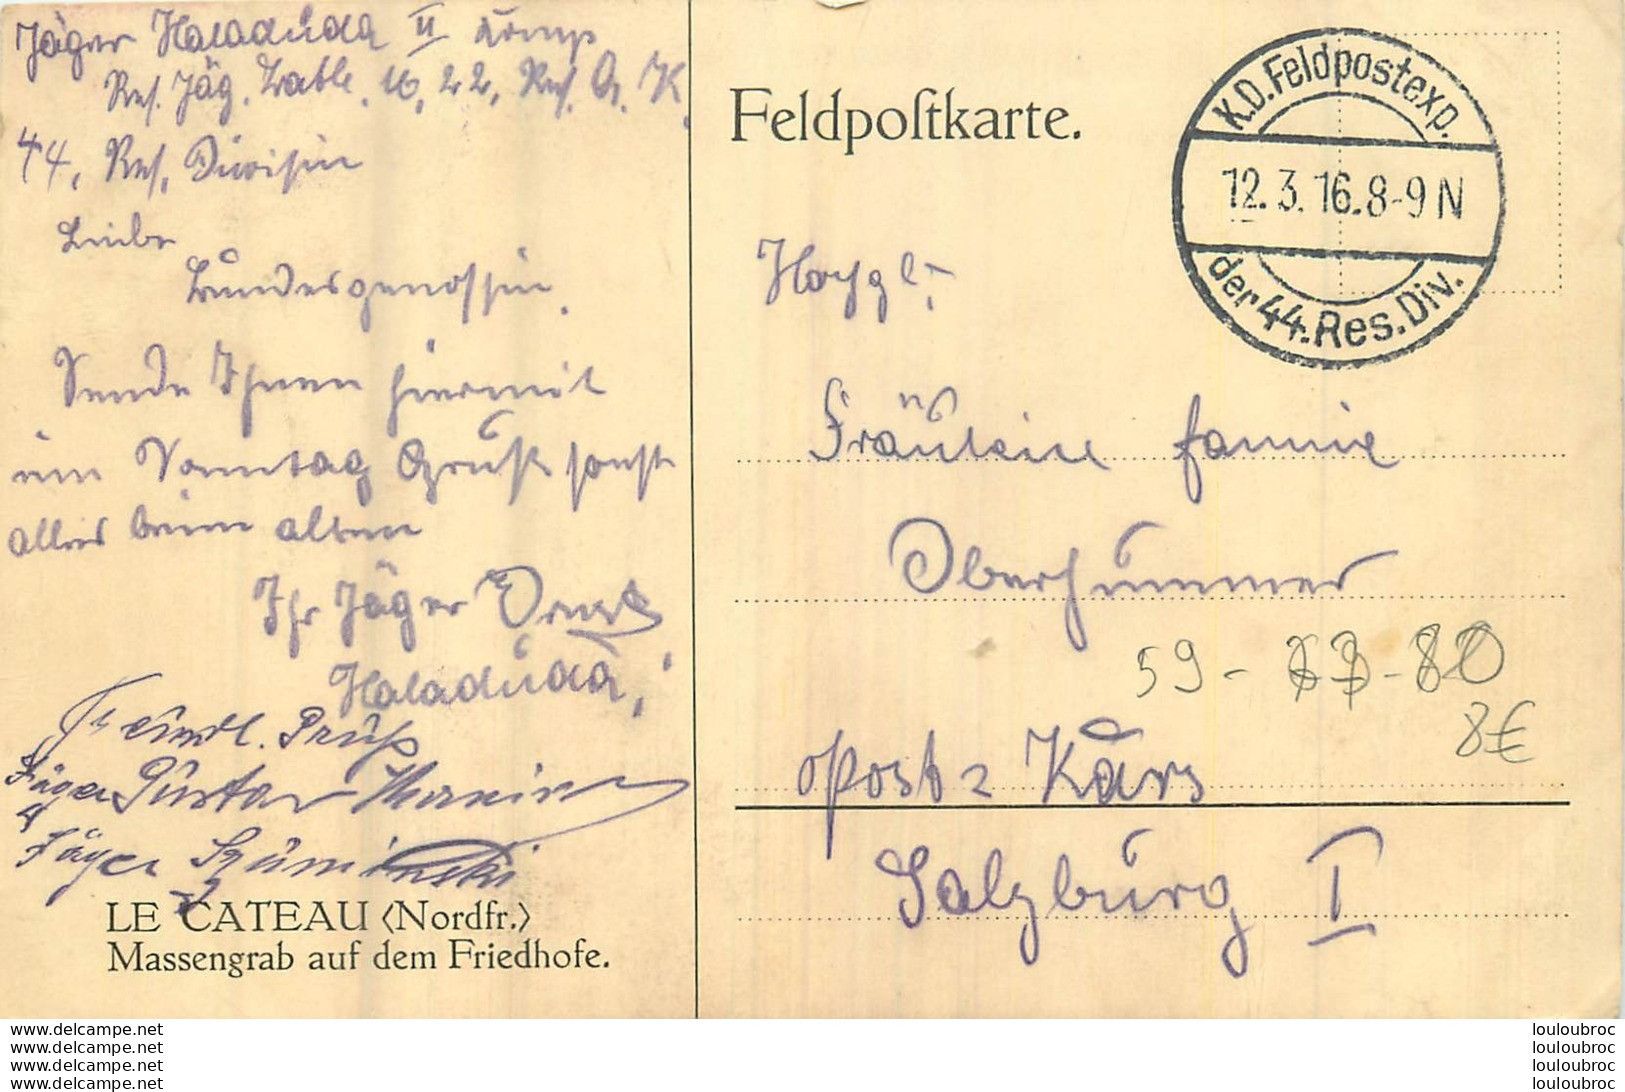 Jäger Haladuda II Komp
Res. Jäg. Batle. 16, 22, Res. A. K.
44, Res. Division
Liebe
Bundesgenossin.
Sende Ihnen hiermit
ein Sonntag Gruß sonst
alles beim alten
Ihr Jäger Ernst
Haladuda.
Freundl. Gruß
Jäger Gustav
Jäger
LE CATEAU (Nordfr.)
Massengrab auf dem Friedhofe.
Feldpoſtkarte.
K.D. Feldpostexp.
12.3.16.8-9 N
der 44. Res. Div.
Fräulein Fannie
Oberhummer
59 -
8€
Post
Salzburg I
www.delcampe.net
www.delcampe.net
www.delcampe.net
www.delcampe.net
louloubroc
louloubroc
louloubroc
louloubroc